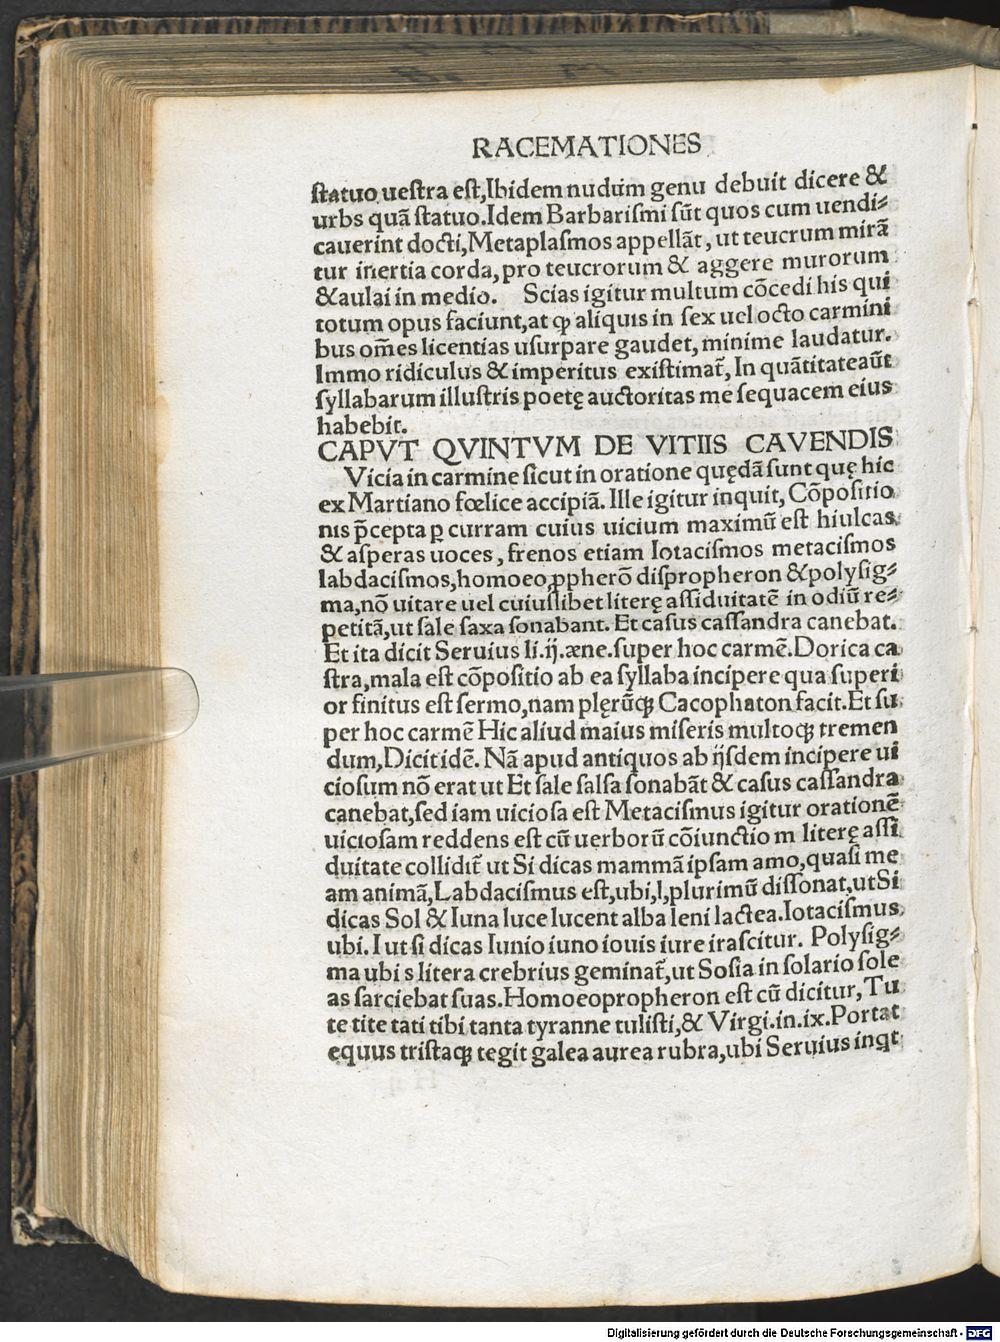 RACEMATIONES
ſtatuo ueſtra eſt,Ibidem nudum genu debuit dicere &
urbs quã ſtatuo.Idem Barbariſmi ſũt quos cum uendi⸗
cauerint docti,Metaplaſmos appellãt, ut teucrum mirã
tur inertia corda, pro teucrorum & aggere murorum
&aulai in medio. Scias igitur multum cõcedi his qui
totum opus faciunt,at ꝙ aliquis in ſex uel octo carmini
bus om̃es licentias uſurpare gaudet, minime laudatur.
Immo ridiculus & imperitus exiſtimat̃, In quãtitateaũt
ſyllabarum illuſtris poetę auctoritas me ſequacem eius
habebit.
CAPVT QVINTVM DE VITIIS CAVENDIS
Vicia in carmine ſicut in oratione quędã ſunt quę hic
ex Martiano fœlice accipiã. Ille igitur inquit, Cõpoſitio
nis p̃cepta ꝑ curram cuius uicium maximũ eſt hiulcas
& aſperas uoces, frenos etiam Iotaciſmos metaciſmos
labdaciſmos,homoeoꝓpherõ diſpropheron &polyſig⸗
ma,nõ uitare uel cuiuſlibet literę aſſiduitatẽ in odiũ re⸗
petitã,ut ſale ſaxa ſonabant. Et caſus caſſandra canebat.
Et ita dicit Seruius li.ij.æne.ſuper hoc carmẽ.Dorica ca
ſtra,mala eſt cõpoſitio ab ea ſyllaba incipere qua ſuperi
or finitus eſt ſermo,nam plęrũꝗ Cacophaton facit.Et ſu
per hoc carmẽ Hic aliud maius miſeris multoꝗ tremen
dum,Dicit idẽ. Nã apud antiquos ab ijſdem incipere ui
cioſum nõ erat ut Et ſale ſalſa ſonabãt & caſus caſſandra
canebat,ſed iam uicioſa eſt Metaciſmus igitur orationẽ
uicioſam reddens eſt cũ uerborũ cõiunctio m literę aſſi
duitate collidit̃ ut Si dicas mammã ipſam amo,quaſi me
am animã,Labdaciſmus eſt,ubi,l,plurimũ diſſonat,ut Si
dicas Sol & luna luce lucent alba leni lactea.Iotaciſmus
ubi. I ut ſi dicas Iunio iuno iouis iure iraſcitur. Polyſig⸗
ma ubi s litera crebrius geminat̃,ut Soſia in ſolario ſole
as ſarciebat ſuas.Homoeopropheron eſt cũ dicitur, Tu
te tite tati tibi tanta tyranne tuliſti,& Virgi.in.ix.Portat
equus triſtaꝗ tegit galea aurea rubra,ubi Seruius inqt
Digitalisierung gefördert durch die Deutsche Forschungsgemeinschaft - DFG